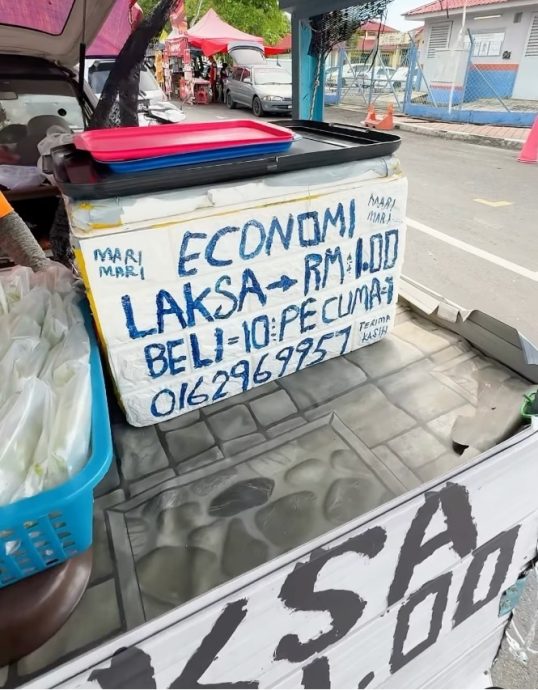 MARI MARI
ECONOMI
MARI MARI
LAKSA → RM:1.00
BELI=10:PE CUMA=1
TERIMA KASIH
0162969957
KSA
1.00